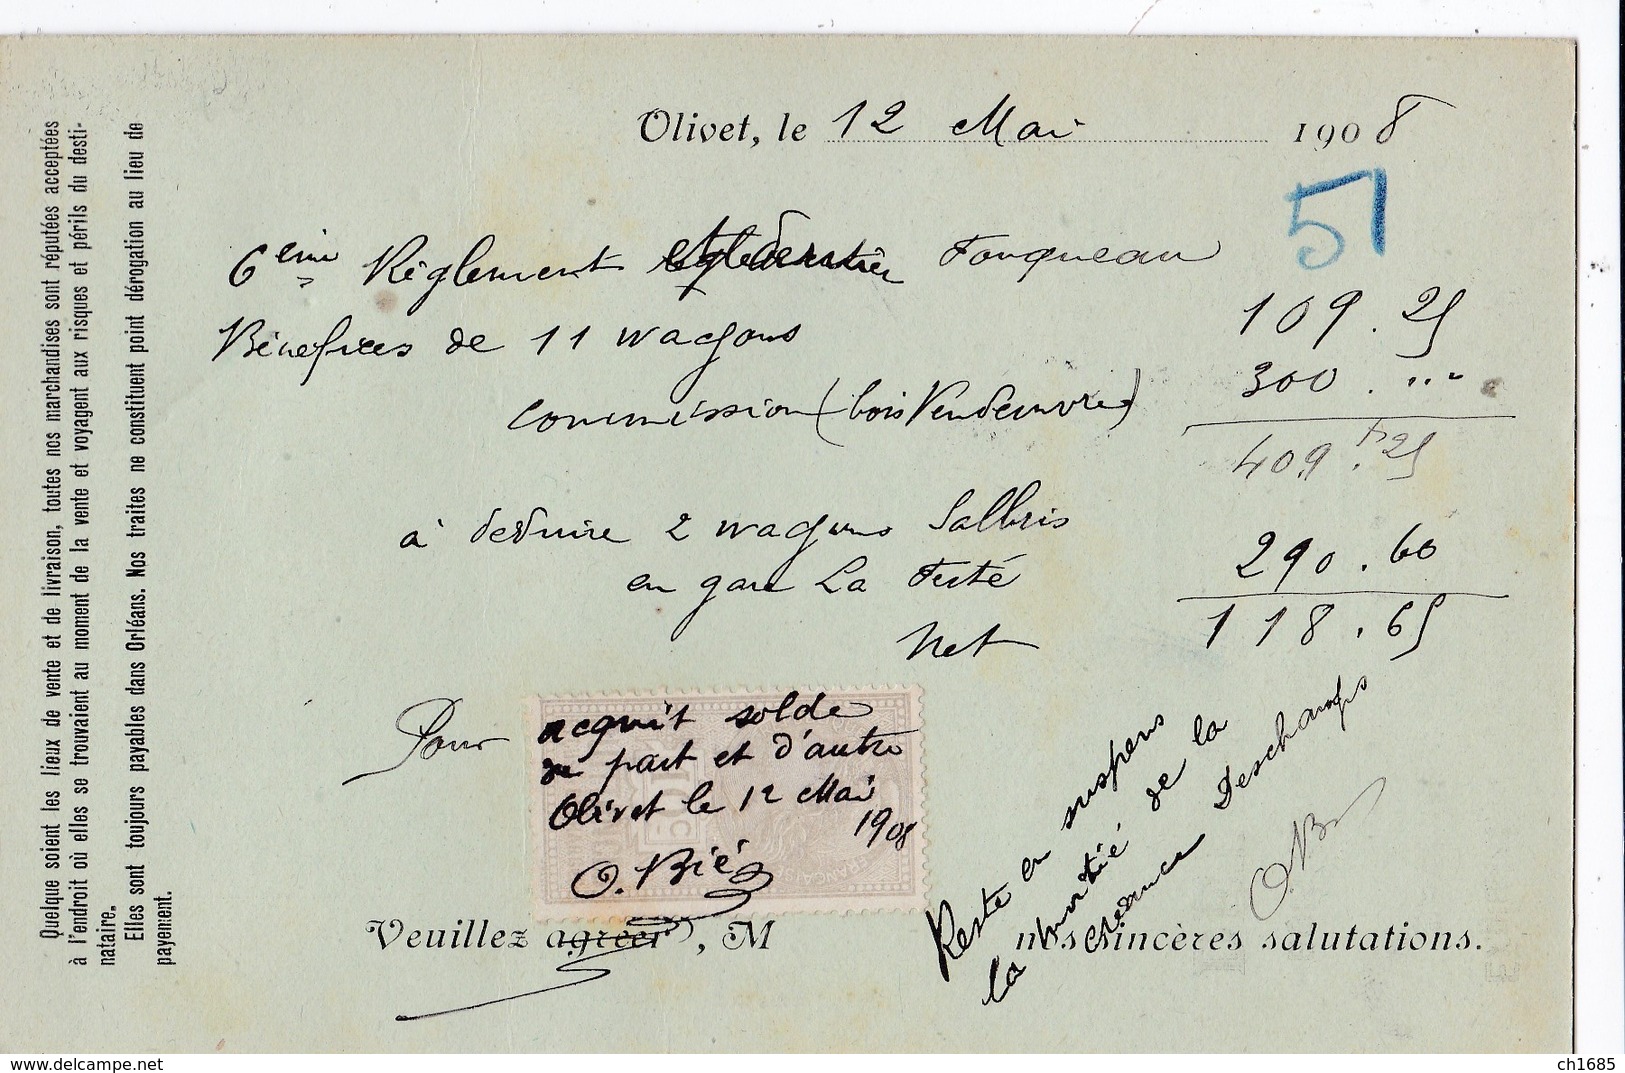 Olivet, le 12 Mai 1908
51
6eme Règlement Fouqueau
Bénéfices de 11 wagons 109.25
commission (bois Vendeuvre) 300. "
409 f. 25
à déduire 2 wagons Salbris
en gare La Ferté 290.60
Net 118.65
Pour acquit solde
de part et d'autre
Olivet le 12 Mai
1908
O. Bié
Reste en suspens
la moitié de la
créance Deschamps
O. B
Veuillez agréer, M nos sincères salutations.
Quelque soient les lieux de vente et de livraison, toutes nos marchandises sont réputées acceptées
à l'endroit où elles se trouvaient au moment de la vente et voyagent aux risques et périls du desti-
nataire.
Elles sont toujours payables dans Orléans. Nos traites ne constituent point dérogation au lieu de
payement.
www.delcampe.net
ch1685